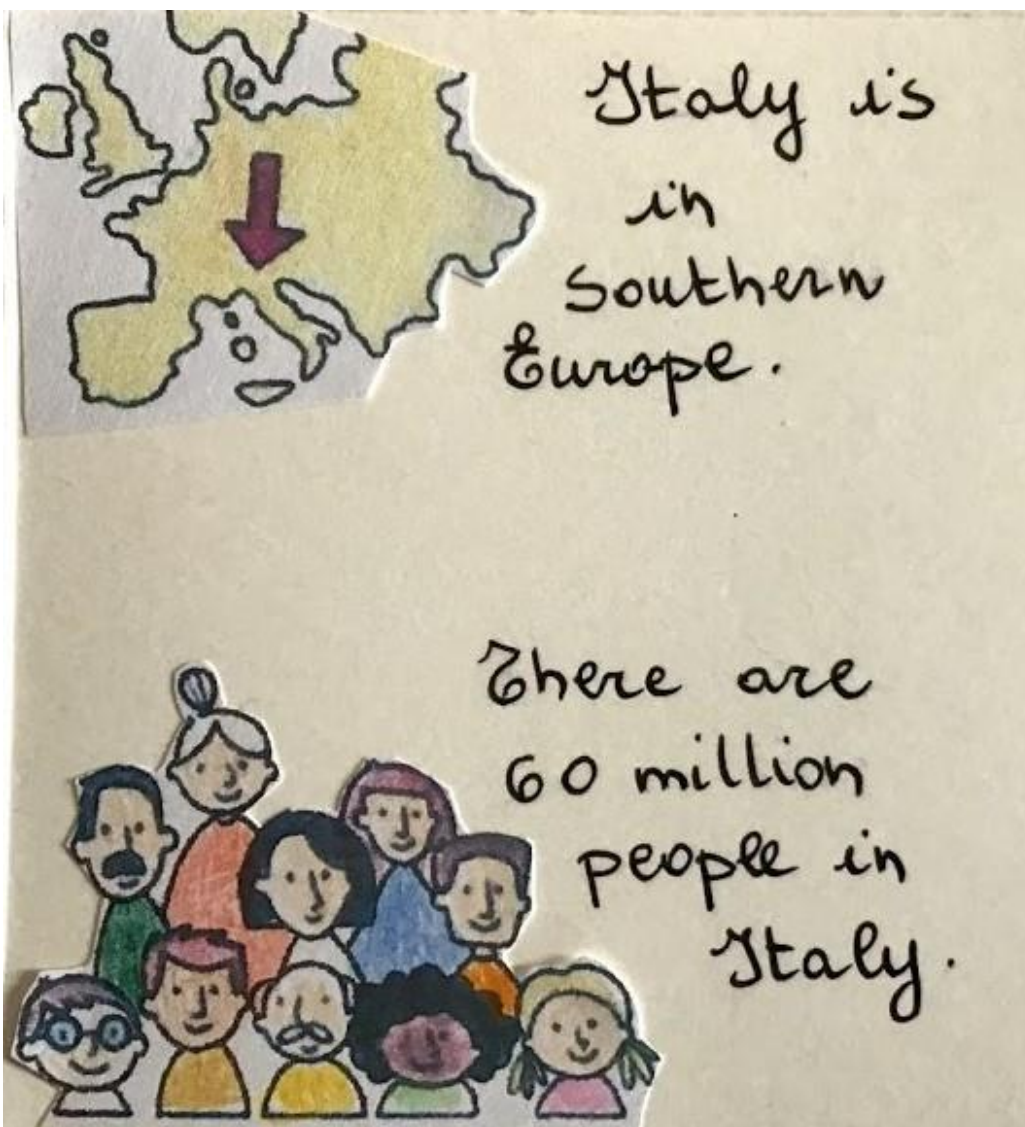 Italy is
in
Southern
Europe.
There are
60 million
people in
Italy.